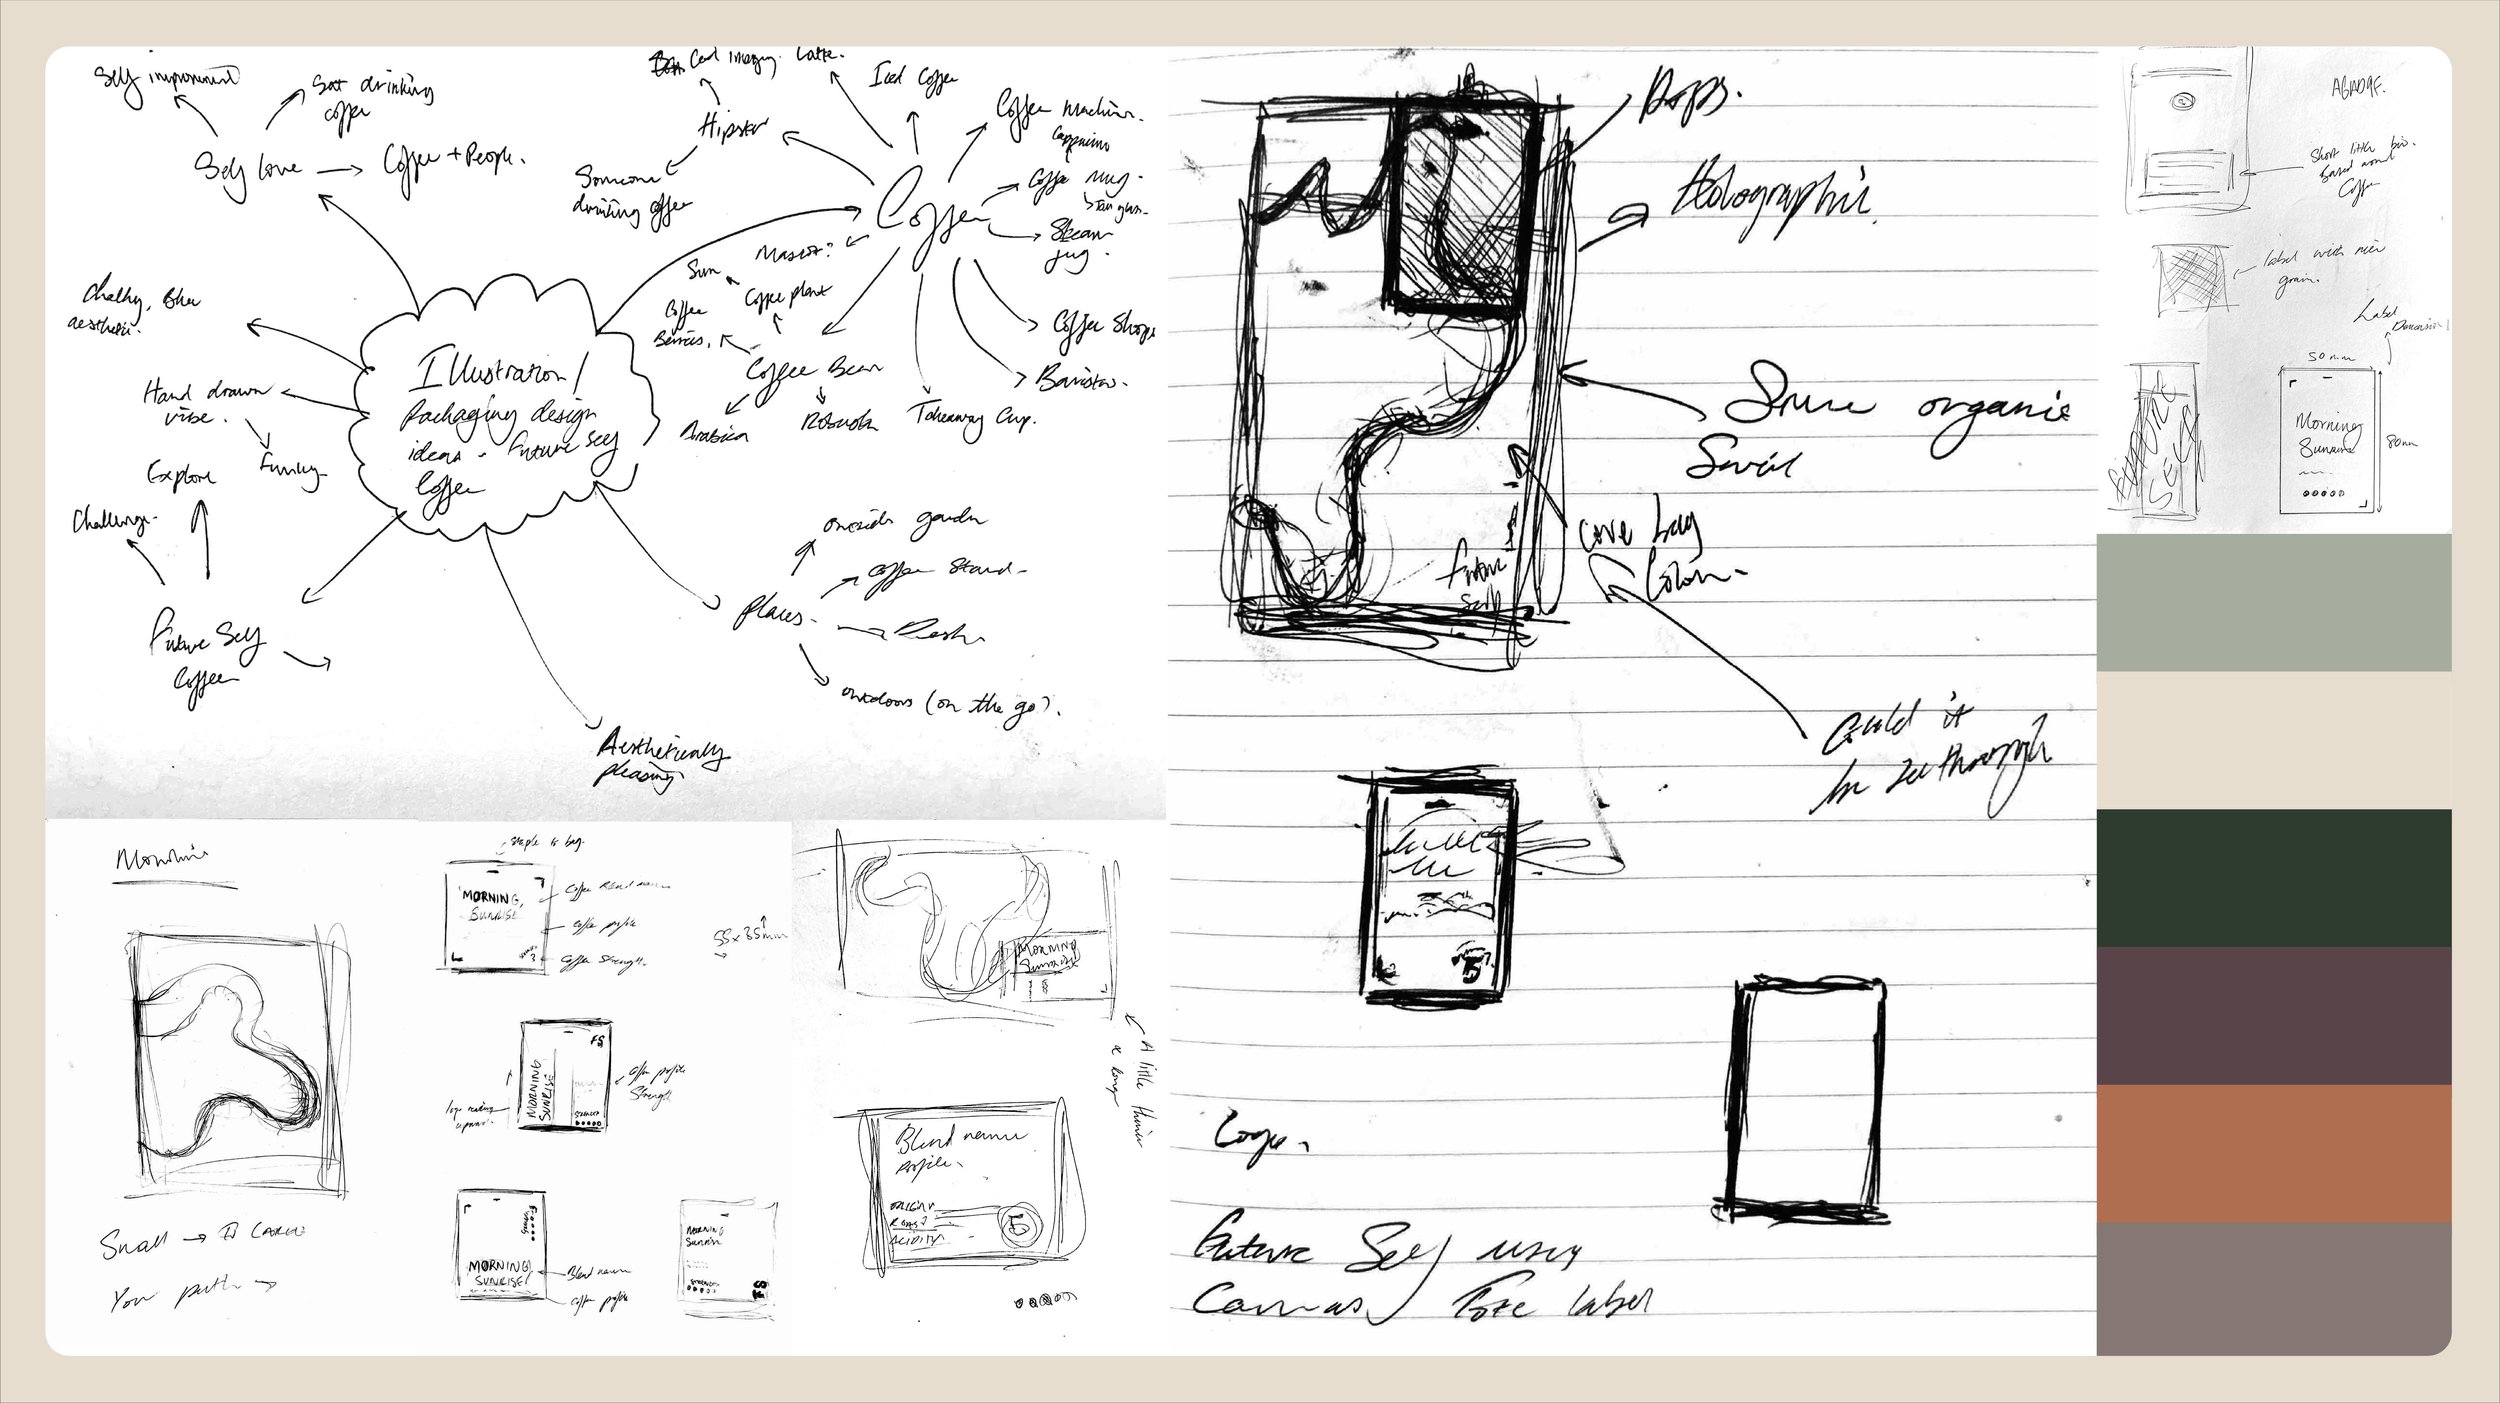 Self improvement
Sat drinking
coffee
Self love
Coffee + People.
Cool imagery.
Latte.
Iced Coffee
Hipster
Someone
drinking coffee
Coffee Machine.
Cappuccino
Coffee mug.
Steam
jug.
Coffee
Mascot?
Sun
Coffee plant
Coffee
Berries.
Coffee Bean
Arabica
Robusta
Takeaway Cup.
Coffee Shops
Baristas.
Chalky,
aesthetic.
Hand drawn
vibe.
Funky
Explore
Challenge.
Illustration/
Packaging design
ideas - Future Self
Coffee
Future Self
Coffee
Places.
outside garden
Coffee Stand.
Desk
outdoors (on the go).
Aesthetically
pleasing.
Small → Large
Your path →
Staple in bag.
MORNING,
SUNRISE
Coffee Blend name
Coffee profile
Coffee Strength.
55 x 85mm
FS
MORNING
SUNRISE
Coffee profile
Strength
STRENGTH
MORNING
SUNRISE
Blend name
Coffee profile
MORNING
Sunrise
STRENGTH
FS
MORNING
Sunrise
A little thinner
Blend name
profile.
ORIGIN
ROAST
ACIDITY
5
Holographic.
Some organic
Swirl
Future
Self
Core bag
Colour.
Could it
be see through
5
Logo.
Future Self using
Canvas Tote label
A6AD9F.
Short little bio.
Based around
Coffee
Label with nice
grain.
Label
Dimensions
50mm
80mm
Morning
Sunrise
FUTURE
SELF